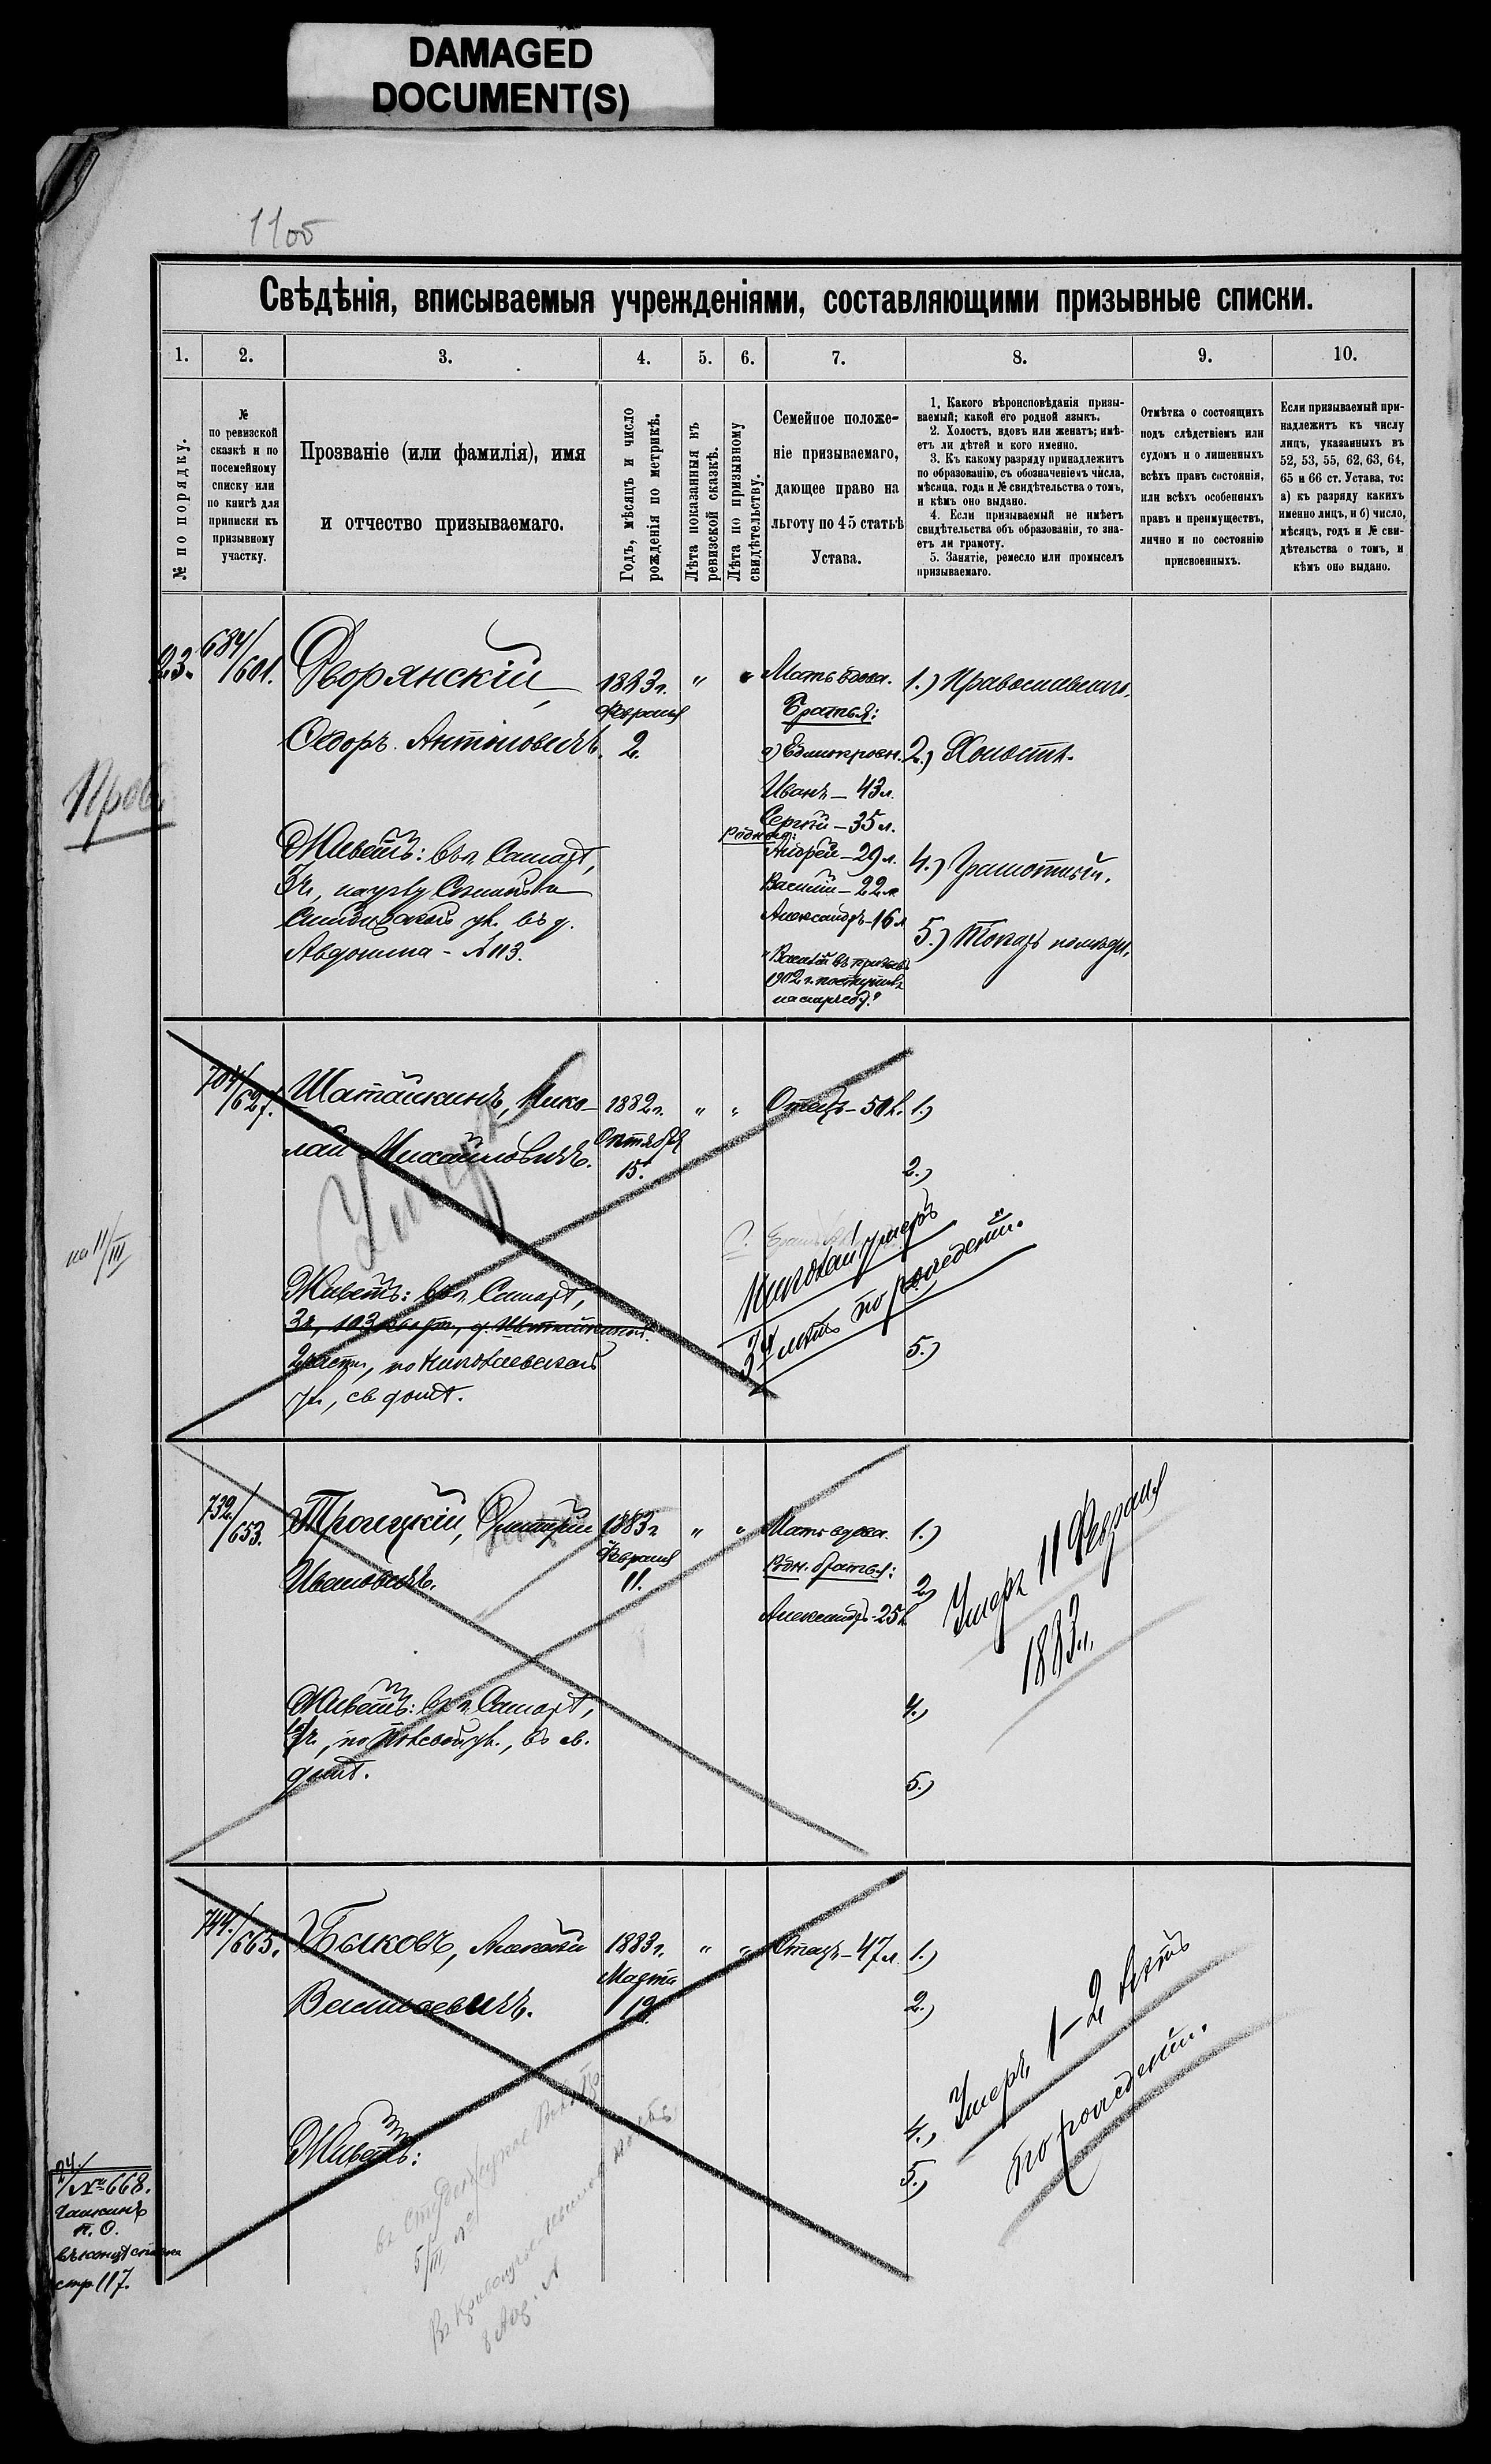 DAMAGED
DOCUMENT(S)
1105
Свѣдѣнія, вписываемыя учрежденіями, составляющими призывные списки.
1. 2. 3. 4. 5. 6. 7. 8. 9. 10.
№ по порядку.
№
по ревизской
сказкѣ и по
посемейному
списку или
по книгѣ для
приписки къ
призывному
участку.
Прозваніе (или фамилія), имя
и отчество призываемаго.
Годъ, мѣсяцъ и число
рожденія по метрикѣ.
Лѣта показанныя въ
ревизской сказкѣ.
Лѣта по призывному
свидѣтельству.
Семейное положе-
ніе призываемаго,
дающее право на
льготу по 45 статьѣ
Устава.
1. Какого вѣроисповѣданія призы-
ваемый; какой его родной языкъ.
2. Холостъ, вдовъ или женатъ; имѣ-
етъ ли дѣтей и кого именно.
3. Къ какому разряду принадлежитъ
по образованію, съ обозначеніемъ числа,
мѣсяца, года и № свидѣтельства о томъ,
и кѣмъ оно выдано.
4. Если призываемый не имѣетъ
свидѣтельства объ образованіи, то зна-
етъ ли грамоту.
5. Занятіе, ремесло или промыселъ
призываемаго.
Отмѣтка о состоящихъ
подъ слѣдствіемъ или
судомъ и о лишенныхъ
всѣхъ правъ состоянія,
или всѣхъ особенныхъ
правъ и преимуществъ,
лично и по состоянію
присвоенныхъ.
Если призываемый при-
надлежитъ къ числу
лицъ, указанныхъ въ
52, 53, 55, 62, 63, 64,
65 и 66 ст. Устава, то:
а) къ разряду какихъ
именно лицъ, и б) число,
мѣсяцъ, годъ и № сви-
дѣтельства о томъ, и
кѣмъ оно выдано.
23.
684/601.
Дворянскій,
Ѳедоръ Антоновичъ.
1883 г.
Февраля
2.
" "
Мать вдова.
Братья:
а) Единокровн.
Иванъ — 43 л.
Сергѣй — 35 л.
Родные:
Андрей — 29 л.
Василій — 22 л.
Александръ — 16 л.
Василій въ призывъ
1902 г. поступилъ
1.) Православнаго.
2.) Холостъ.
4.) Грамотный.
5.) Токарь
Живетъ: въ г. Самарѣ,
3 ч., на углу
ул. въ д.
Авдонина - № 113.
704/627.
Шаташкинъ, Нико-
лай Михайловичъ.
Умеръ
1882 г.
Октября
15.
" "
Отецъ — 50 л.
1.)
2.)
5.)
Николай умеръ
3х лѣтъ по рожденіи.
Живетъ: въ г. Самарѣ,
3 ч., 103 кварт., д. Шаташкиной.
2 части, по Николаевской
ул., св. домѣ.
на 11/III
732./653.
Троицкій, Дмитрій
Ивановичъ.
1883 г.
Февраля
11.
" "
Мать вдова.
Родн. братья:
Александръ - 25 л.
1.)
2.)
4.)
5.)
Умеръ 11 Февраля
1883 г.
Живетъ: въ г. Самарѣ,
ул., въ св.
домѣ.
744./665.
Быковъ, Алексѣй
Васильевичъ.
1883 г.
Марта
12.
" "
Отецъ — 47 л.
1.)
2.)
4.)
5.)
Умеръ 1-2 лѣтъ
по рожденіи.
Живетъ:
24.
№ 668.
п. О.
въ концѣ списка
стр. 117.